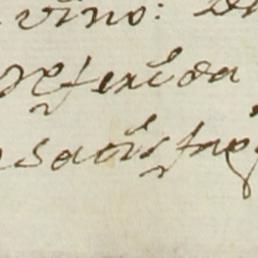 vino: De
referida
satisfaz